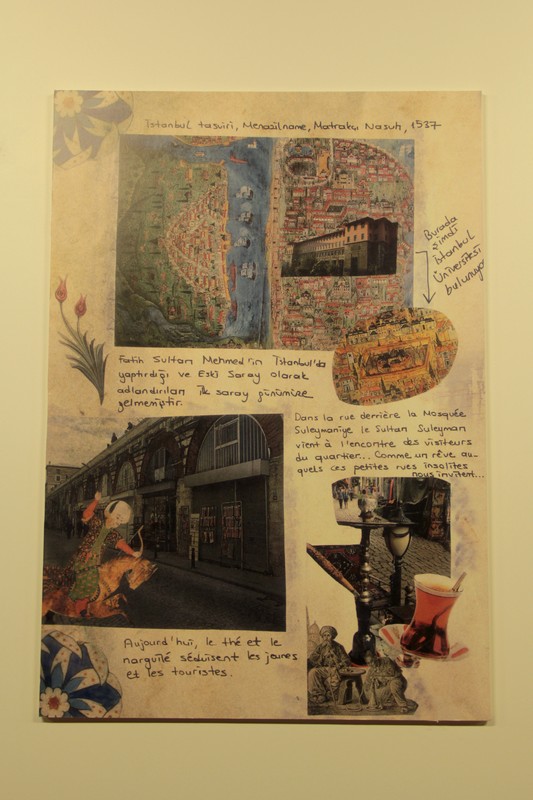 İstanbul tasviri, Menazilname, Matrakçı Nasuh, 1537
Burada
şimdi
İstanbul
Üniversitesi
bulunuyor
Fatih Sultan Mehmed'in İstanbul'da
yaptırdığı ve Eski Saray olarak
adlandırılan ilk saray günümüze
gelmemiştir.
Dans la rue derrière la Mosquée
Suleymaniye le Sultan Suleyman
vient à l'encontre des visiteurs
du quartier... Comme un rêve au-
quels ces petites rues insolites
nous invitent...
Aujourd'hui, le thé et le
narguilé séduisent les jeunes
et les touristes.